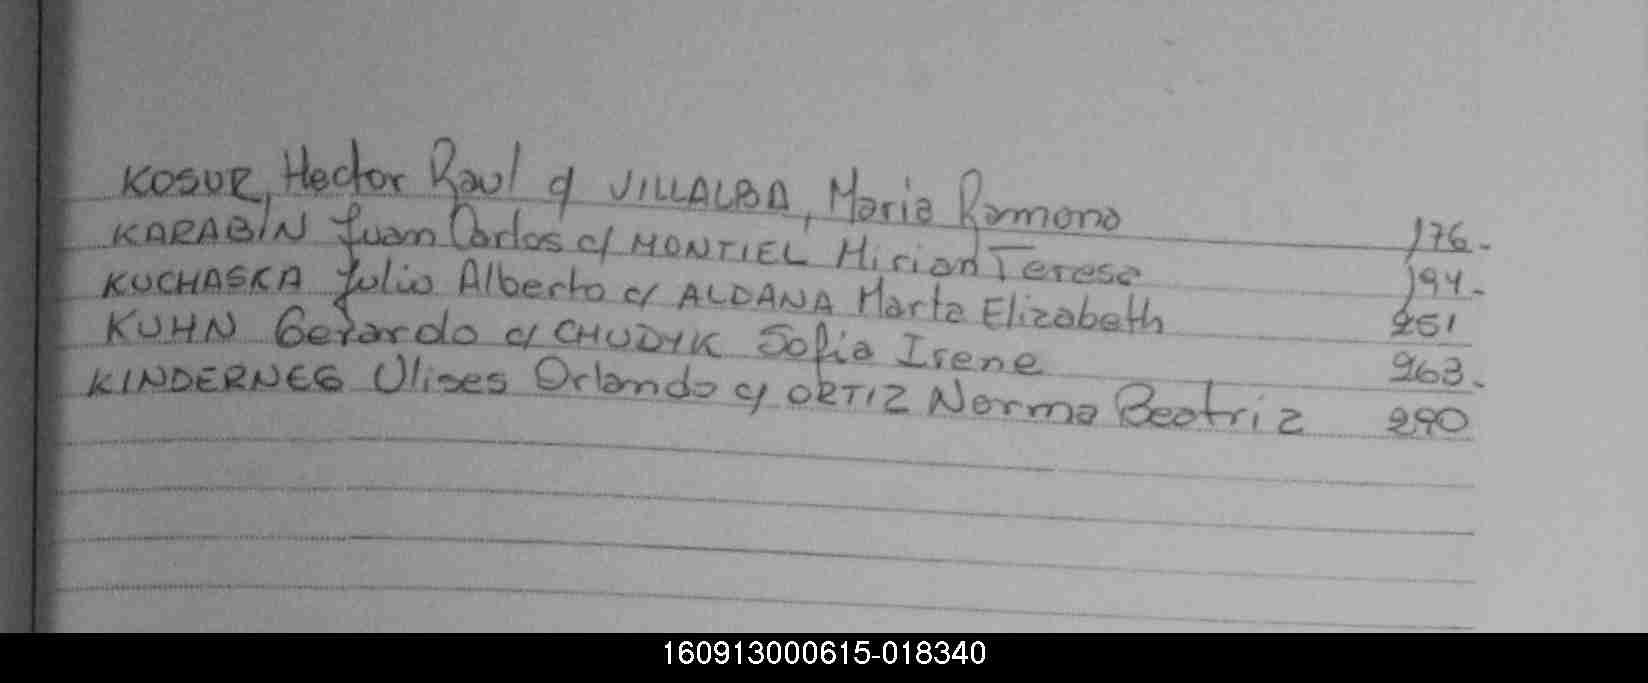 KOSUR, Hector Raul c/ VILLALBA, Maria Ramona 176.-
KARABIN Juan Carlos c/ MONTIEL Mirian Teresa 194.-
KUCHASKA Julio Alberto c/ ALDANA Marta Elizabeth 251
KUHN Gerardo c/ CHUDYK Sofia Irene 263.
KINDERNEG Ulises Orlando c/ ORTIZ Norma Beatriz 290
160913000615-018340